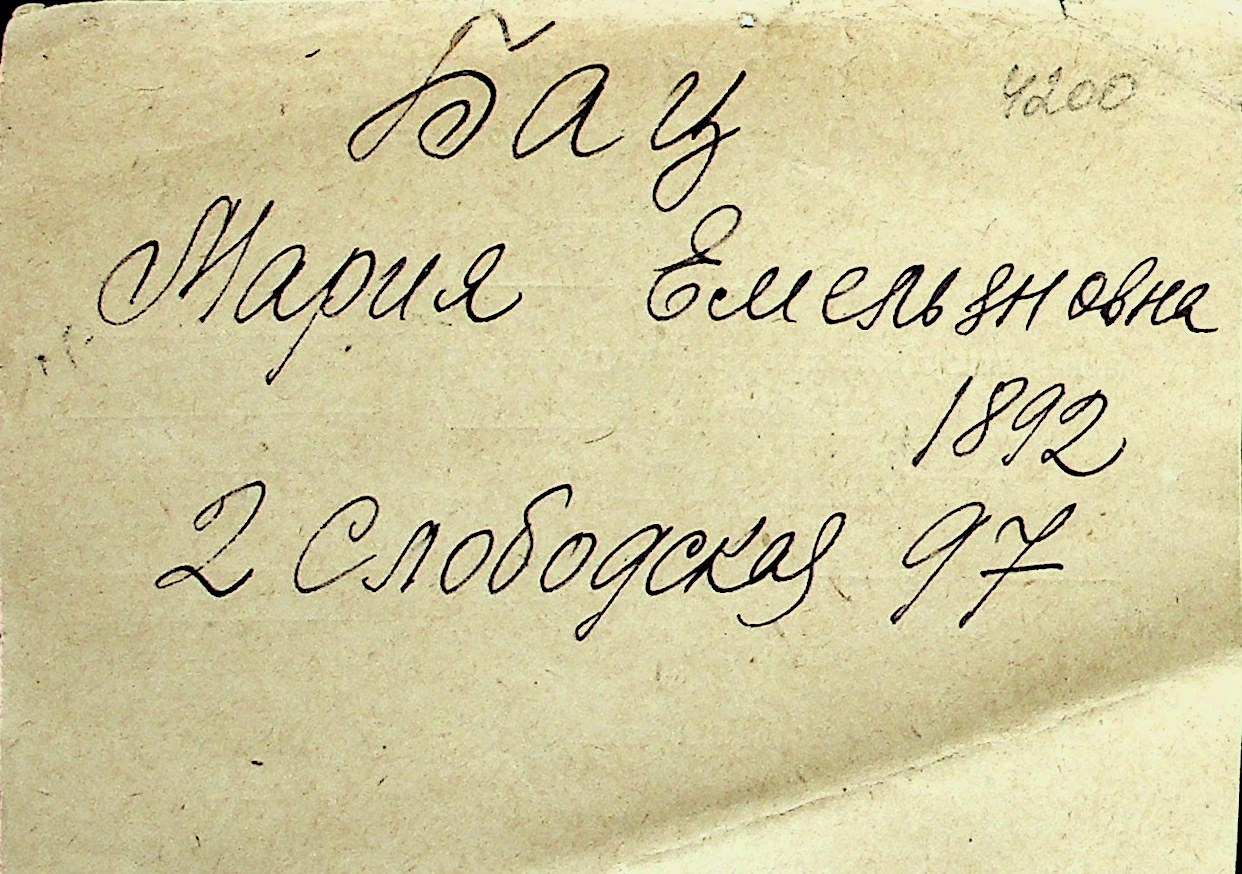 Бац 4200
Мария Емельяновна
1892
2 Слободская 97